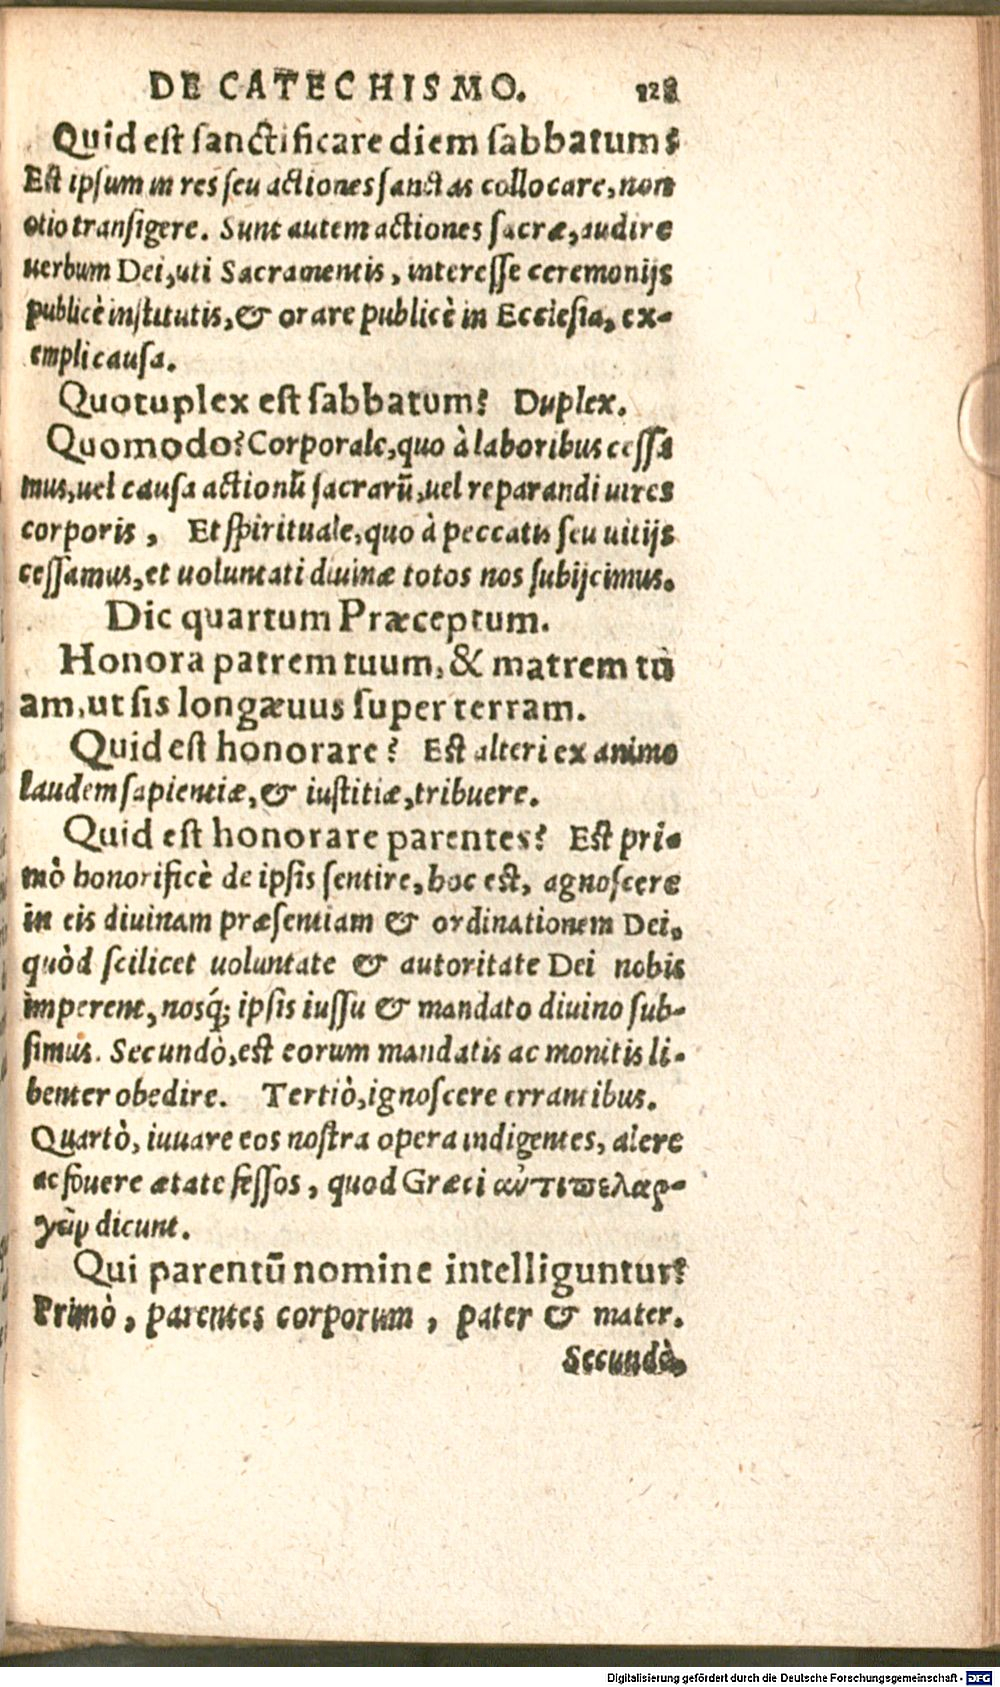 DE CATECHISMO. 128
Quid est sanctificare diem sabbatum?
Est ipsum in res seu actiones sanctas collocare, non
otio transigere. Sunt autem actiones sacræ, audire
uerbum Dei, uti Sacramentis, interesse ceremonijs
publicè institutis, & orare publicè in Ecclesia, ex-
empli causa.
Quotuplex est sabbatum? Duplex.
Quomodo? Corporale, quo à laboribus cessa
mus, uel causa actionũ sacrarũ, uel reparandi uires
corporis, Et spirituale, quo à peccatis seu uitijs
cessamus, et uoluntati diuinæ totos nos subijcimus.
Dic quartum Præceptum.
Honora patrem tuum, & matrem tu
am, ut sis longæuus super terram.
Quid est honorare? Est alteri ex animo
laudem sapientiæ, & iustitiæ, tribuere.
Quid est honorare parentes? Est pri-
mò honorificè de ipsis sentire, hoc est, agnoscere
in eis diuinam præsentiam & ordinationem Dei,
quòd scilicet uoluntate & autoritate Dei nobis
imperent, nosq́; ipsis iussu & mandato diuino sub-
simus. Secundò, est eorum mandatis ac monitis li-
benter obedire. Tertiò, ignoscere errantibus.
Quartò, iuuare eos nostra opera indigentes, alere
ac fouere ætate fessos, quod Græci ἀντιπελαρ-
γεῖν dicunt.
Qui parentũ nomine intelliguntur?
Primò, parentes corporum, pater & mater.
Secundò,
Digitalisierung gefördert durch die Deutsche Forschungsgemeinschaft - DFG